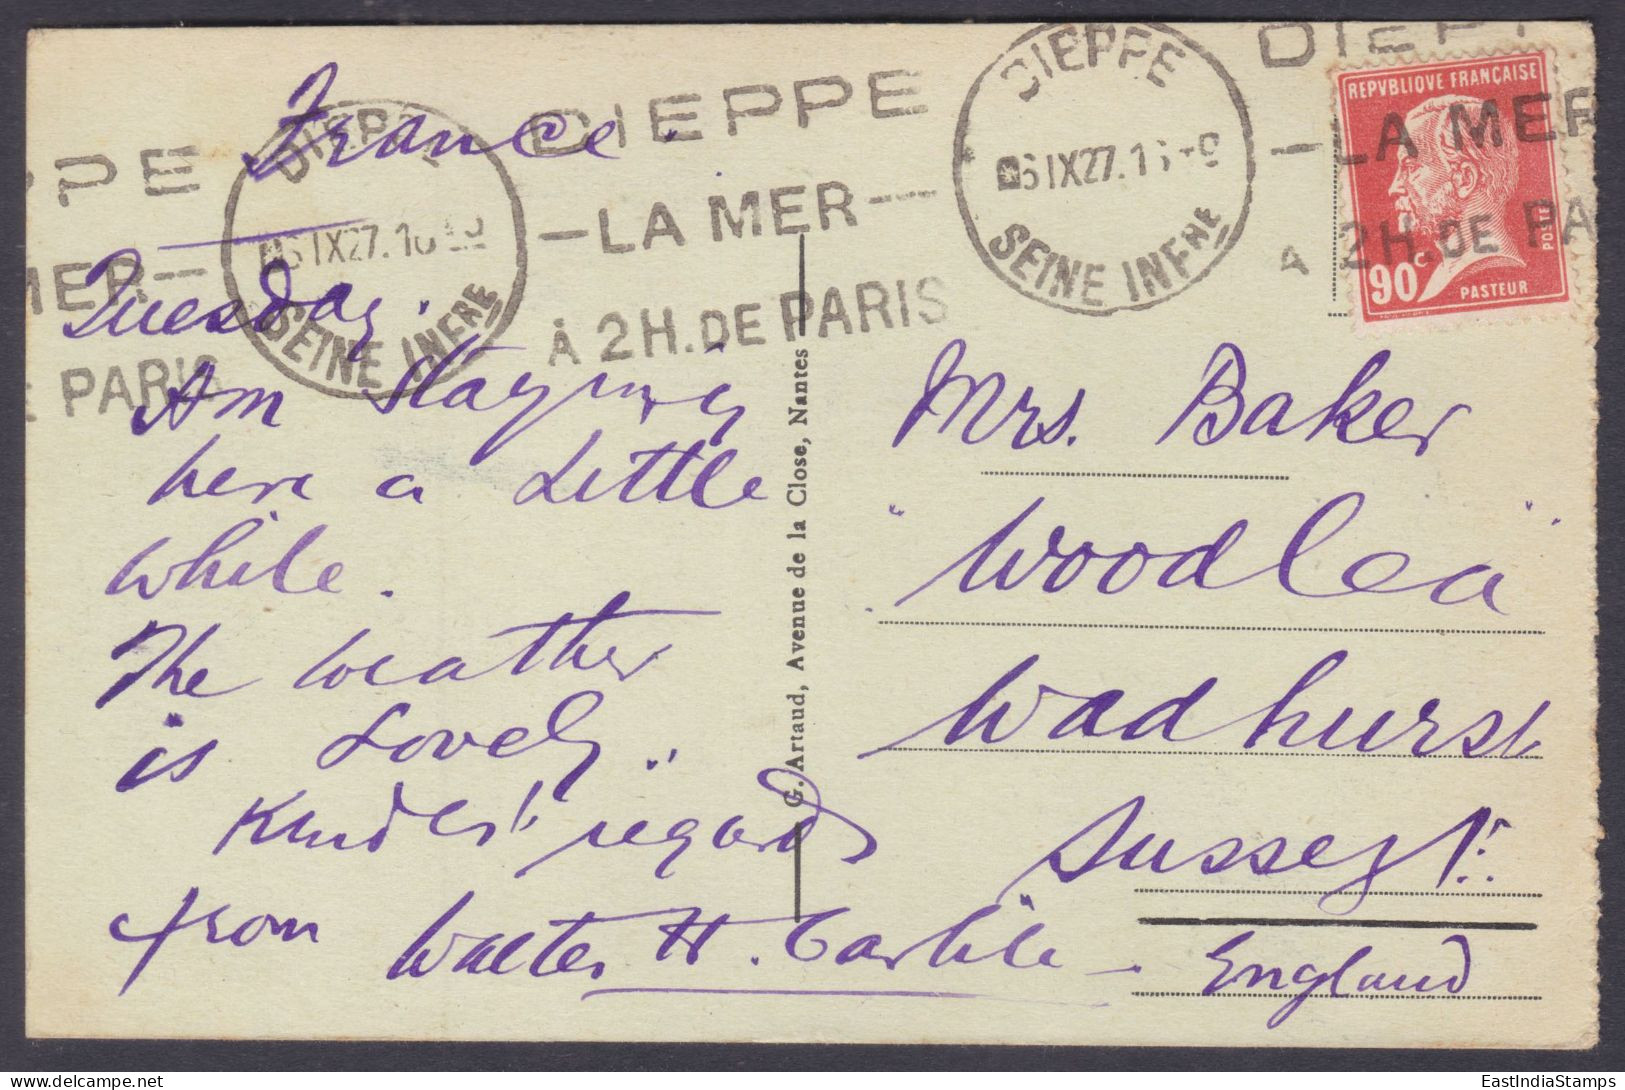 DIEPPE
LA MER
À 2H. DE PARIS
DIEPPE
6 IX 27. 16
SEINE INFRE
DIEPPE
LA MER
À 2H. DE PARIS
DIEPPE
SEINE INFRE
IX 27. 16
PPE
MER
PARIS
REPVBLIQVE FRANÇAISE
POSTES
90c
PASTEUR
France.
Tuesday.
Am Staying
here a Little
while.
The weather
is Lovely.
Kindest regards
from Walter H. Carlile
G. Artaud, Avenue de la Close, Nantes
Mrs. Baker
"Woodlea"
Wadhurst
Sussex
England
EastIndiaStamps